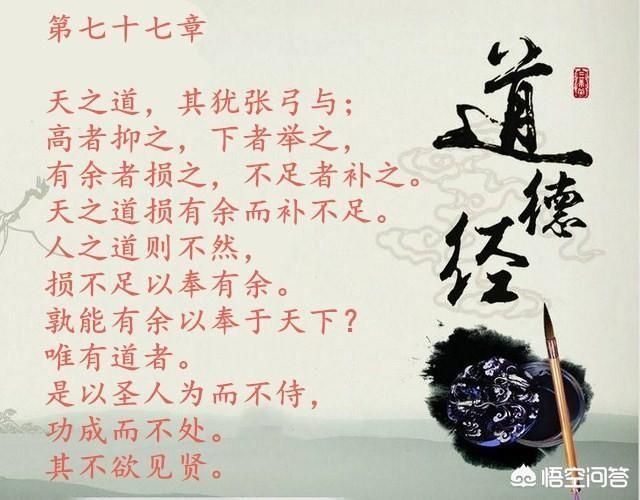 第七十七章
天之道，其犹张弓与；
高者抑之，下者举之，
有余者损之，不足者补之。
天之道损有余而补不足。
人之道则不然，
损不足以奉有余。
孰能有余以奉于天下？
唯有道者。
是以圣人为而不侍，
功成而不处。
其不欲见贤。
道德经
悟空问答